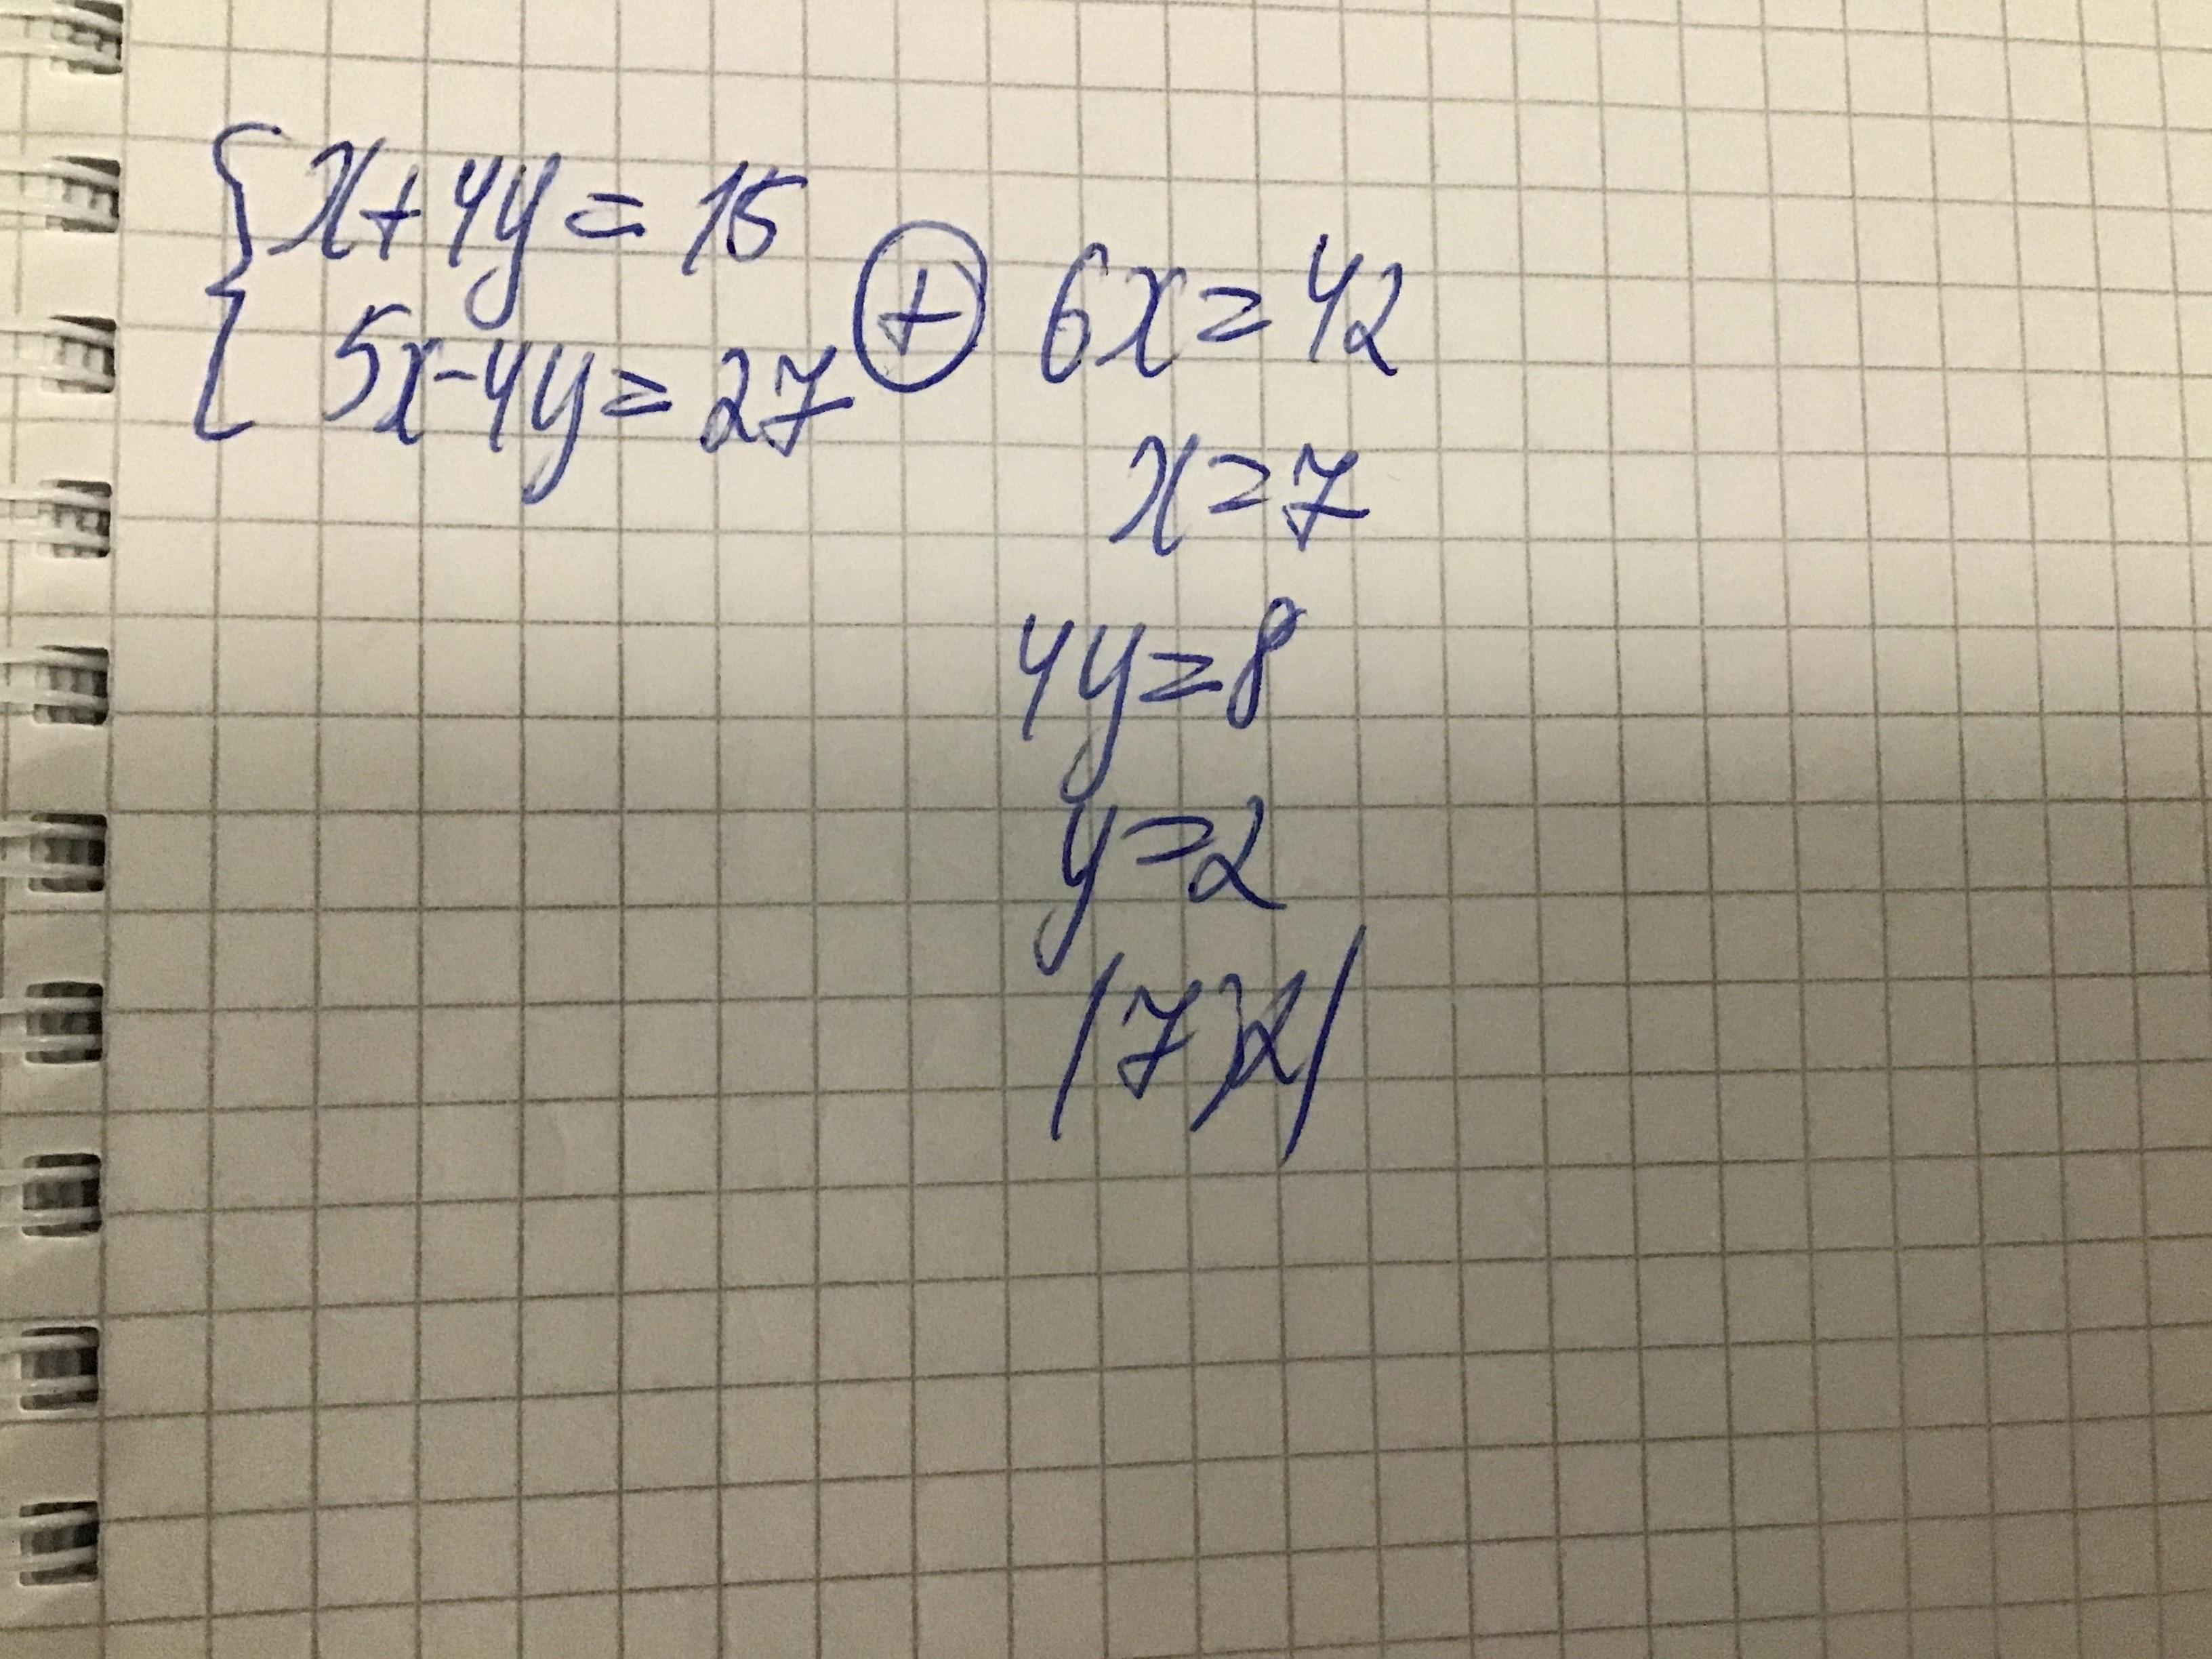 x+4y=15
5x-4y=27 + 6x=42
x=7
4y=8
y=2
(7;2)